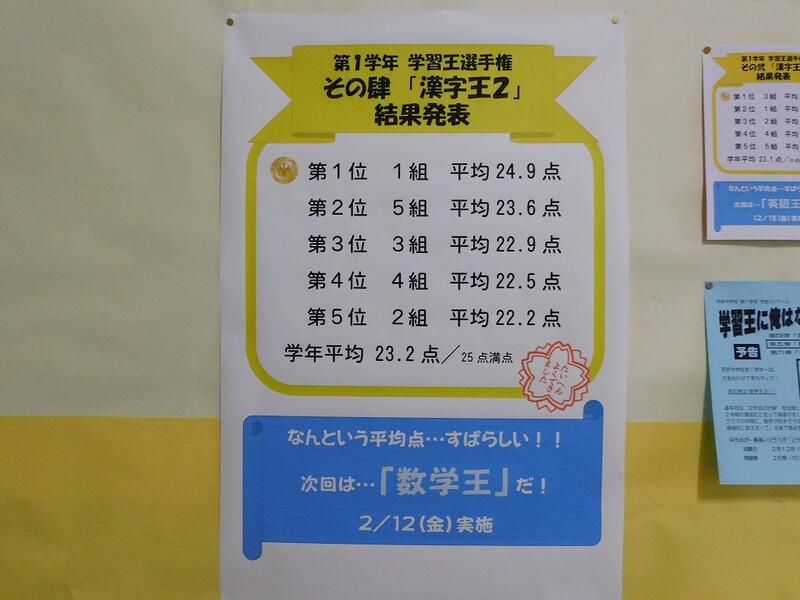 第1学年 学習王選手権
その肆 「漢字王2」
結果発表
第1位 1組 平均24.9点
第2位 5組 平均23.6点
第3位 3組 平均22.9点
第4位 4組 平均22.5点
第5位 2組 平均22.2点
学年平均 23.2点／25点満点
たいへん
よくでき
ました
なんという平均点…すばらしい！！
次回は…「数学王」だ！
2／12(金)実施
第1学年 学習王選手権
その弐 「漢字王
結果発表
第1位 3組 平均
第2位 1組 平均
第3位 2組 平均
第4位 4組 平均
第5位 5組 平均
学年平均 23.1点／
なんという平均点…すばら
次回は…「英語王
12／18(金)実施
学習王に俺はな
予告